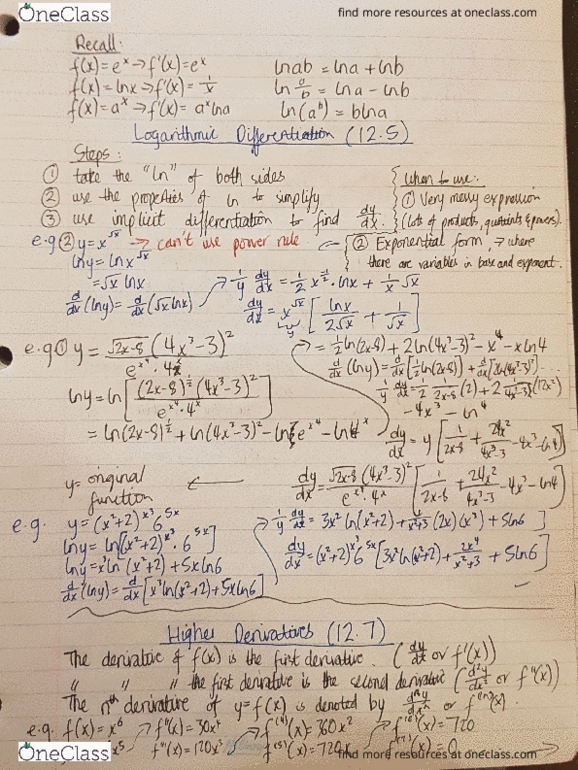 OneClass
find more resources at oneclass.com
Recall:
f(x) = e^x → f'(x) = e^x
ln ab = ln a + ln b
f(x) = ln x → f'(x) = 1/x
ln a/b = ln a - ln b
f(x) = a^x → f'(x) = a^x ln a
ln(a^b) = b ln a
Logarithmic Differentiation (12.5)
Steps:
① take the "ln" of both sides
② use the properties of ln to simplify
③ use implicit differentiation to find dy/dx.
When to use:
① Very messy expression
(lots of products, quotients & powers).
② Exponential form, → where
there are variables in base and exponent.
e.g ② y = x^√x → can't use power rule
ln y = ln x^√x
= √x ln x
d/dx (ln y) = d/dx (√x ln x)
1/y dy/dx = 1/2 x^-1/2 · ln x + 1/x √x
dy/dx = x^√x [ ln x / 2√x + 1/√x ]
y
e.g ① y = √2x-8 (4x^3-3)^2 / e^x^4 · 4^x
ln y = ln [ (2x-8)^1/2 (4x^3-3)^2 / e^x^4 · 4^x ]
= ln(2x-8)^1/2 + ln(4x^3-3)^2 - ln e^x^4 - ln 4^x
= 1/2 ln(2x-8) + 2 ln(4x^3-3) - x^4 - x ln 4
d/dx (ln y) = d/dx [1/2 ln(2x-8)] + d/dx [2 ln(4x^3-3)] ...
1/y dy/dx = 1/2 1/(2x-8) (2) + 2 1/(4x^3-3) (12x^2)
- 4x^3 - ln 4
dy/dx = y [ 1/2x-8 + 24x^2/4x^3-3 - 4x^3 - ln 4 ]
y = original
function
dy/dx = √2x-8 (4x^3-3)^2 / e^x^4 · 4^x [ 1/2x-8 + 24x^2/4x^3-3 - 4x^3 - ln 4 ]
e.g. y = (x^2+2)^x^3 6^5x
ln y = ln[(x^2+2)^x^3 · 6^5x]
ln y = x^3 ln (x^2+2) + 5x ln 6
d/dx (ln y) = d/dx [x^3 ln(x^2+2) + 5x ln 6]
1/y dy/dx = 3x^2 ln(x^2+2) + 1/x^2+3 (2x)(x^3) + 5 ln 6 ]
dy/dx = (x^2+2)^x^3 6^5x [3x^2 ln(x^2+2) + 2x^4/x^2+3 + 5 ln 6 ]
Higher Derivatives (12.7)
The derivative of f(x) is the first derivative. (dy/dx or f'(x))
" " " the first derivative is the second derivative (d^2y/dx^2 or f''(x))
The nth derivative of y = f(x) is denoted by d^ny/dx^n or f^(n)(x).
e.g. f(x) = x^6
f''(x) = 30x^4
f^(4)(x) = 360x^2
f^(6)(x) = 720
x^5
f'''(x) = 120x^3
f^(5)(x) = 720x
f^(7)(x) = 0
OneClass
find more resources at oneclass.com